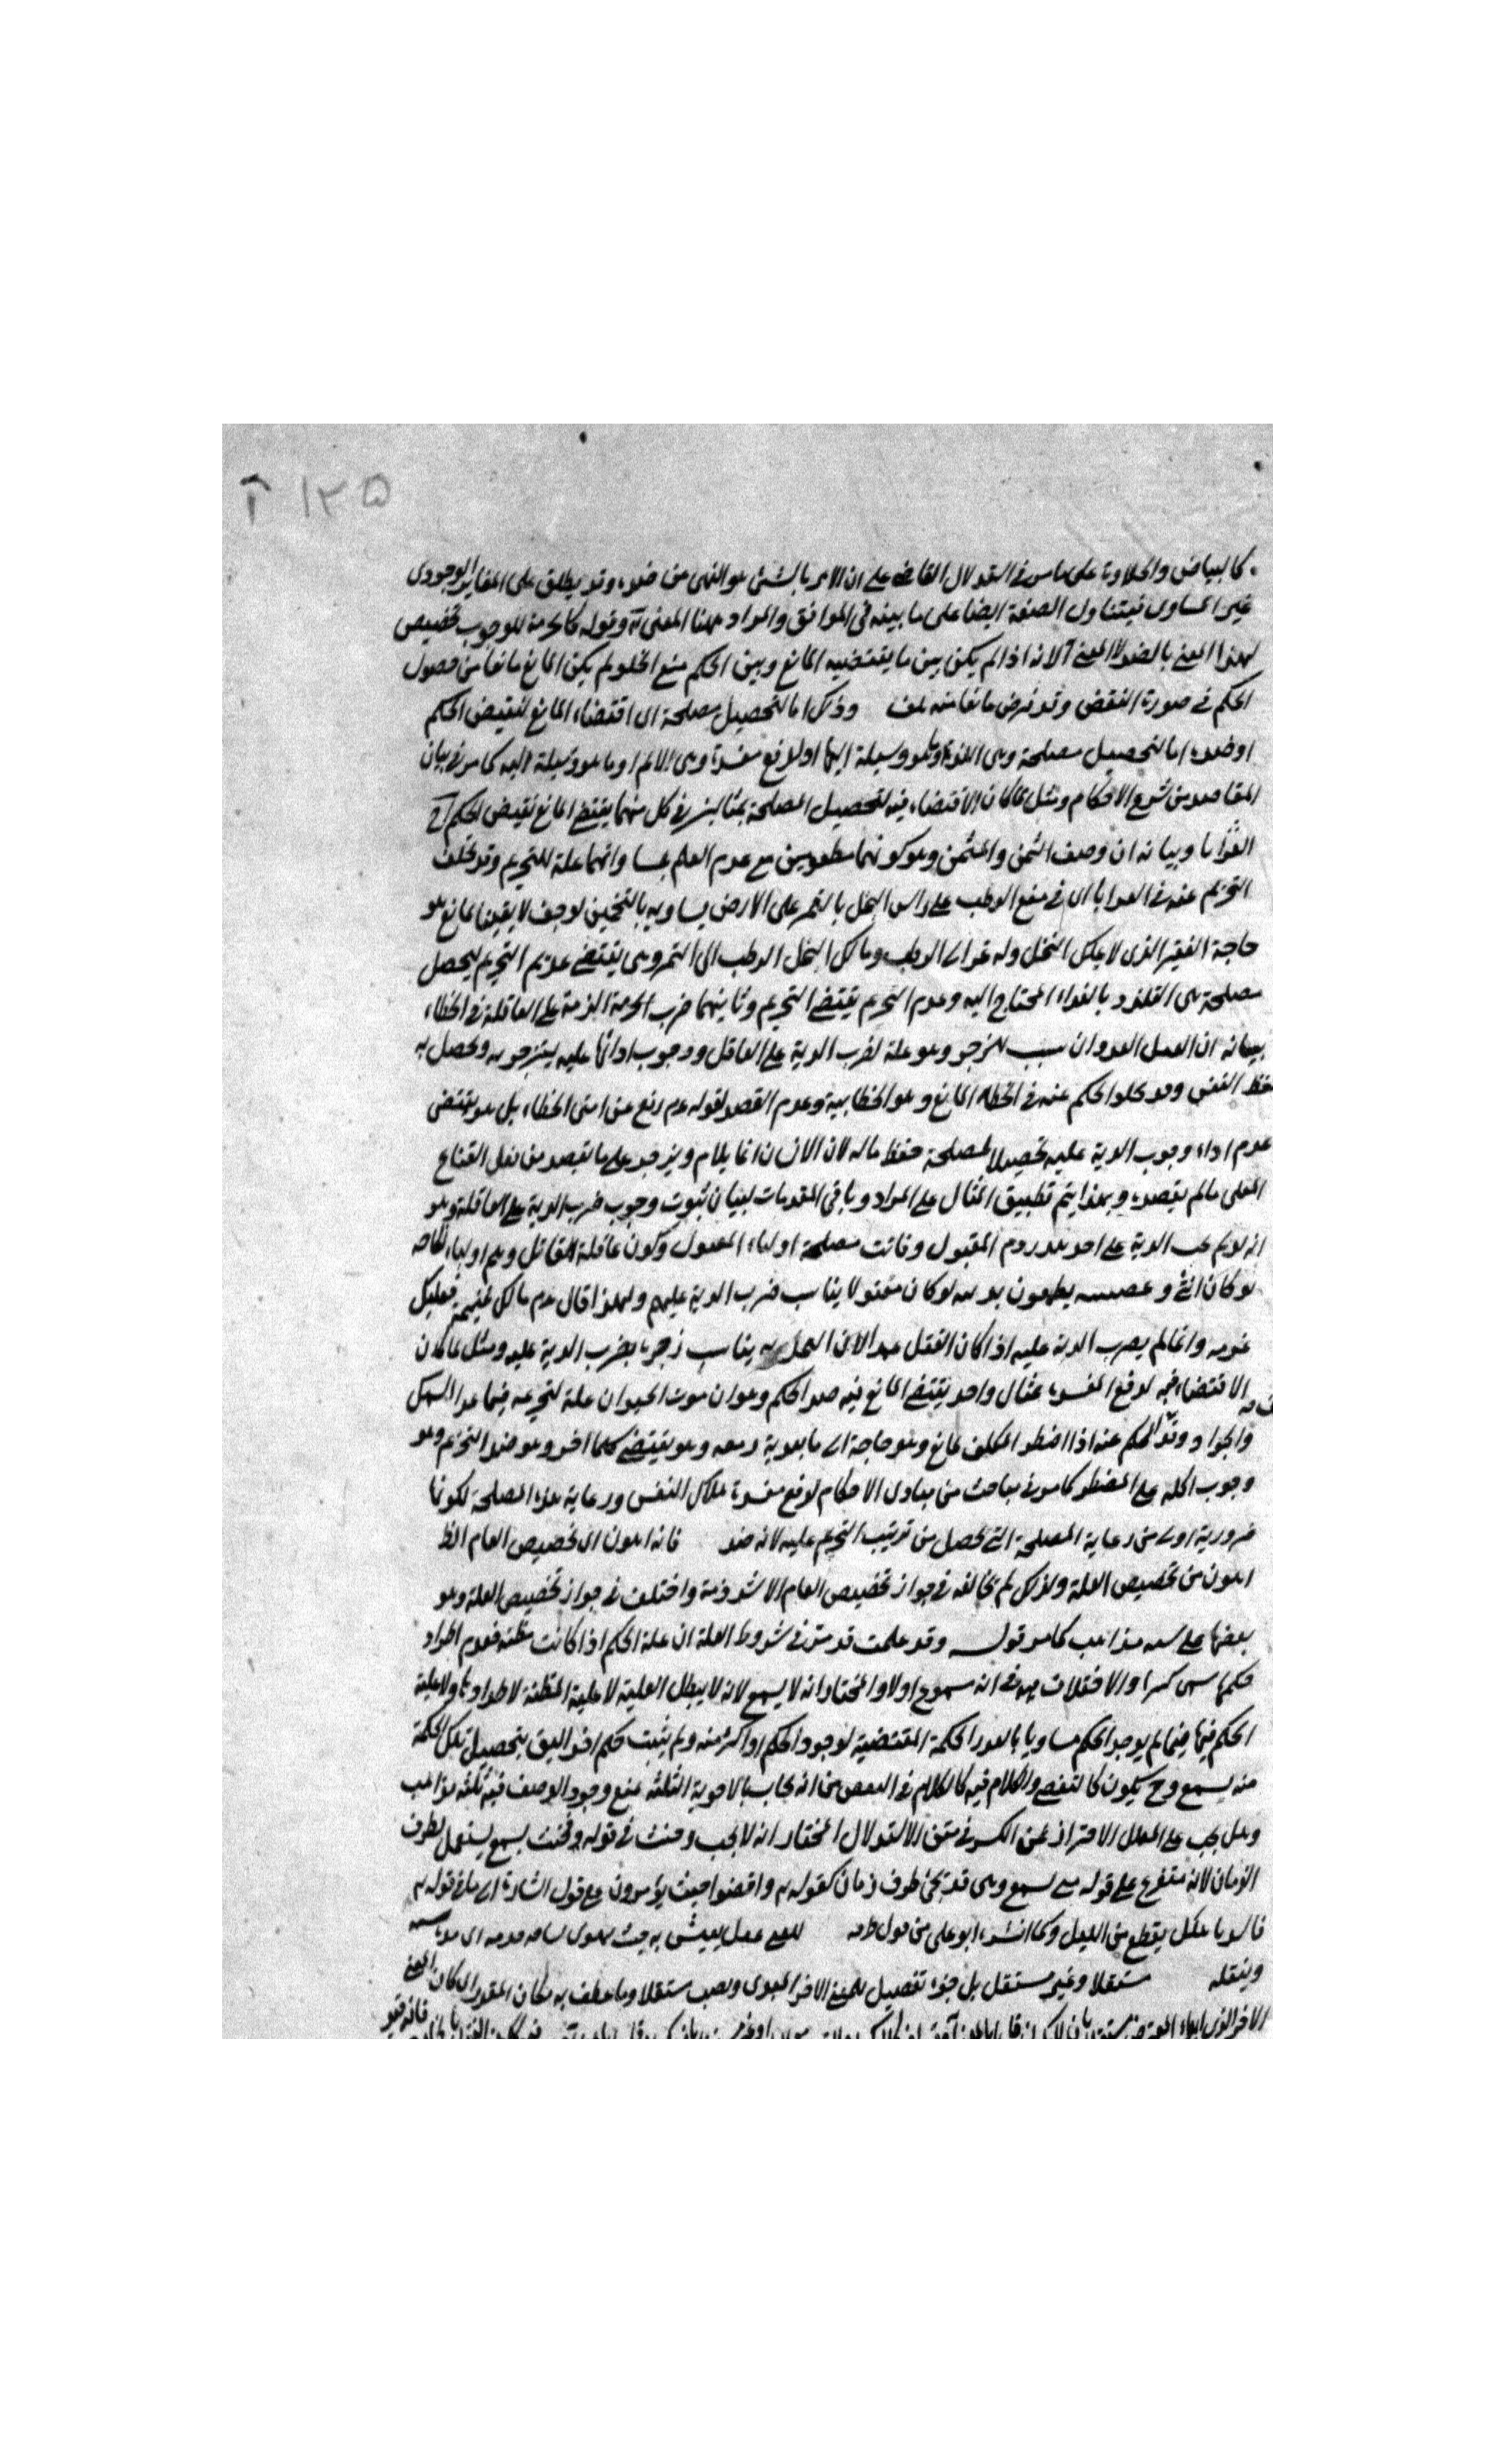 ١٢٥ آ
كالبياض والحلاوة على ما مر في استدلال القاضي على ان الامر بالشئ هو النهى عن ضده وقد يطلق على المغاير الوجودى
غير المساوى فيتناول الصفة ايضا على ما بينه في المواقف والمراد ههنا المعنى آ وقوله كالحرمة للوجوب تخصيص
لهذا المعنى بالضد لا المعنى آ لانه اذا لم يكن بين ما يقتضيه المانع وبين الحكم منع الخلو لم يكن المانع مانعا من حصول
الحكم في صورة النقض وقد فرض مانعا منه هف وذلك اما لتحصيل مصلحة اى اقتضاء المانع لنقيض الحكم
او ضده اما لتحصيل مصلحة وهى اللذة او ما هو وسيلة اليها او لدفع مفسدة وهى الالم او ما هو وسيلة اليه كما مر في بيان
المقاصد من شرع الاحكام ومثل لما كان الاقتضاء فيه لتحصيل المصلحة بمثالين في كل منهما يقتضى المانع نقيض الحكم آ
العرايا وبيانه ان وصف الثمن والمثمن وهو كونهما مطعومين مع عدم العلم بتساوانهما علة للتحريم وقد تخلف
التحريم عنه في العرايا اى في منع الرطب على راس النخل بالتمر على الارض يساويه بالتخمين لوجف لا يقينا لمانع هو
حاجة الفقير الذى لا يملك النخل وله الى الرطب ومالك النخل الرطب الى التمر وهى يقتضى عدم التحريم ليحصل
مصلحة هى التلذذ بالغذاء المحتاج اليه وعدم التحريم نقيض التحريم وثانيهما ضرب الدية على العاقلة في الخطاء
بيانه ان العمد العدوان سبب للزجر وهو علة لضرب الدية على القاتل ووجوب ادائها عليه لينزجر به ويحصل به
حفظ النفس وقد تخلف الحكم عنه في الخطاء لمانع وهو الخطائية وعدم القصد لقوله عم رفع عن امتى الخطاء بل هو يقتضى
عدم اداء وجوب الدية عليه تحصيلا لمصلحة حفظ ماله لان الانسان انما يلام ويزجر على ما يقصد من فعل القبايح
الفعلى ما لم يقصده وبهذا يتم تطبيق المثال على المراد وباقى المقدمات لبيان ثبوت وجوب ضرب الدية على العاقلة وهو
انه لو لم يجب الدية على احد هدر دم المقتول وفاتت مصلحة اولياء المقتول وكون عاقلة القاتل وهم اولياء
لو كان وعصبته يطمعون لو كان مقتولا يناسب ضرب الدية عليهم ولهذا قال عم مالك غنيمته فعليك
غرمه وانما لم يضرب الدية عليه اذا كان القتل عمدا لان القتل به يناسب زجره بضرب الدية عليه ومثل لما كان
الاقتضاء فيه لدفع المفسدة بمثال واحد يقتضى المانع فيه ضد الحكم وهو ان موت الحيوان علة لتحريمه فيما عدا السمك
والجراد وتخلف الحكم عنه اذا اضطر المكلف لمانع وهو حاجة الى ما يقوى رمقه وهو يقتضى حكما اخر وهو ضد التحريم وهو
وجوب اكله على المضطر كما مر في مباحث من مبادى الاحكام لدفع مفسدة هلاك النفس ورعاية هذه المصلحة لكونها
ضرورية اولى من رعاية المصلحة التى تحصل من ترتيب التحريم عليه لانه ضد فانه اهون اى تخصيص العام الظ
اهون من تخصيص العلة ولذلك لم يخالف في جواز تخصيص العام الا شرذمة واختلف في جواز تخصيص العلة وهو
بعضها على مذاهب كما مر قوله وقد علمت قد مر في شروط العلة ان علة الحكم اذا كانت مظنة فعدم اطراد
حكمتها يسمى كسرا والاختلاف في انه مسموع اولا والمختار انه لا يسمع لانه لا يبطل العلية لا علية المظنة لاطرادها ولا علية
الحكم فيها فيما لم يوجد الحكم مساويا بالعدد الحكمة المقتضية لوجود الحكم او اكثر منه ولم يثبت حكم اخر اليق بتحصيل تلك الحكمة
منه يسمع وح يكون كالنقض والكلام فيه كالكلام في النقض من انه يجاب بالاجوبة الثلثة بمنع وجود الوصف فيه ثلثة مذاهب
وهل يجب على المعلل الاحتراز عن الكسر في متن الاستدلال المختار انه لا يجب وحيث في قوله وبحيث يسمع يستعمل لظرف
الزمان لانه متفرع على قوله متى يسمع وهى قد تجئ ظرف زمان كقوله تعالى وامضوا حيث يؤمرون على قول اشارة الى ما في قوله تعالى
فاسر باهلك بقطع من الليل وكما انشده ابو على من قول طرفه للفتى عقل يعيش به حيث تهدى ساقه قدمه اى مدة
وينقله مستقلا وغير مستقل بل جزء تفصيل للمعنى الاخر ونصب مستقلا وما عطف به كان المقدر اى كان المعنى